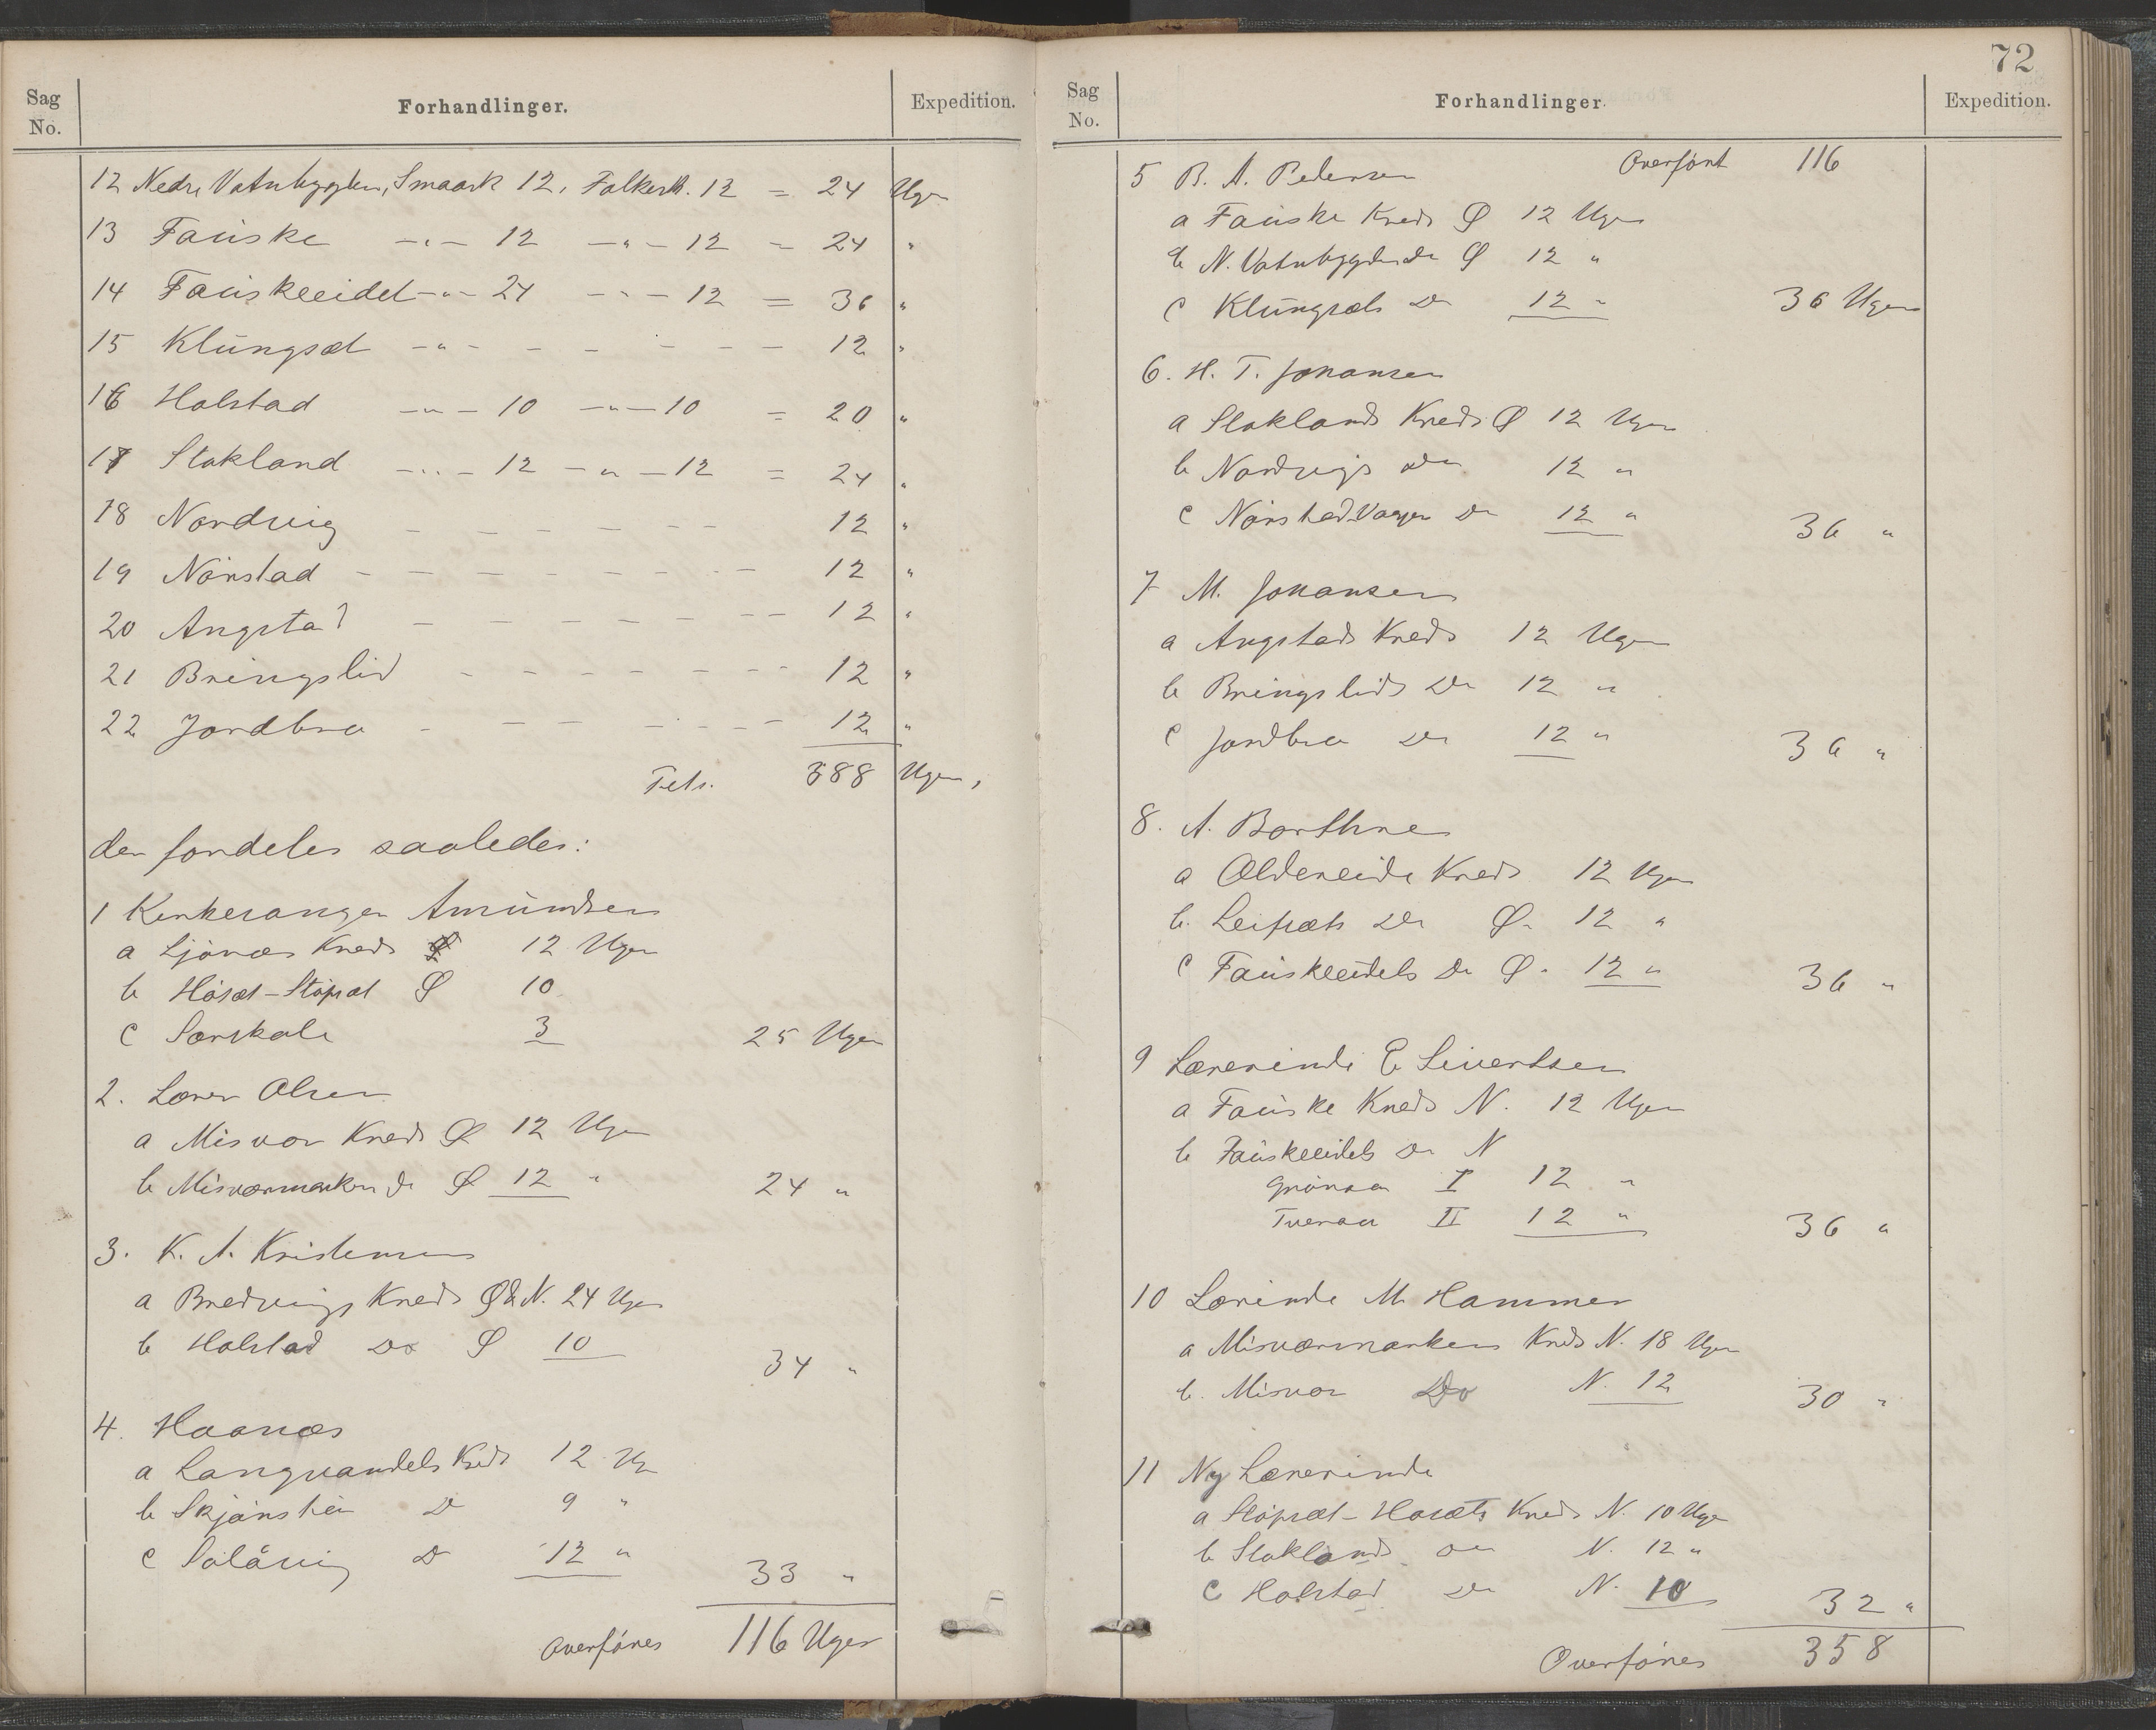 Sag No.
Forhandlinger.
Expedition.
12 Nedre Vatnbygden, Smaask 12, Folkesk. 12 = 24 Uger
13 Fauske -"- 12 -"- 12 = 24 "
14 Fauskeeidet -"- 24 -"- 12 = 36 "
15 Klungsæt -"- - - - - - 12 "
16 Holstad -"- 10 -"- 10 = 20 "
17 Stokland -"- 12 -"- 12 = 24 "
18 Nordvig - - - - - - 12 "
19 Nörstad - - - - - - - - 12 "
20 Angstad - - - - - - - 12 "
21 Bringslid - - - - - - - 12 "
22 Jordbro - - - - - - 12 "
Tils. 388 Uger,
der fordeles saaledes:
1 Kirkesanger Amundsen
a Ljönæs Kreds 12 Uger
b Höset-Stöpset Ø 10
c Særskole 3 25 Uger
2. Lærer Olsen
a Misvær Kreds Ø 12 Uger
b Misværmarken do Ø 12 " 24 "
3. K. A. Kristensen
a Bredviks Kreds Ø & N. 24 Uger
b Holstad Do Ø 10 34 "
4. Haanæs
a Langvandets Kreds 12 Ug
b Skjönsheia D 9 "
c Sölåvig D 12 " 33 "
Overföres 116 Uger
72
Sag No.
Forhandlinger.
Expedition.
Overfört 116
5 B. A. Pedersen
a Fauske Kreds Ø 12 Uger
b N. Vatnbygden do Ø 12 "
c Klungsæts Do 12 " 36 Uger
6. H. T. Johansen
a Stoklands Kreds Ø 12 Uger
b Nordvigs Do 12 "
c Nörstad-Vaagen Do 12 " 36 "
7 M. Johansen
a Angstads Kreds 12 Uger
b Bringslids Do 12 "
c Jordbro Do 12 " 36 "
8. A. Borthne
a Oldereide Kreds 12 Uger
b. Leifsæts Do Ø. 12 "
c Fauskeeidets Do Ø. 12 " 36 "
9 Lærerinde E Sivertsen
a Fauske Kreds N. 12 Uger
b Fauskeeidets Do N
Grönaa I 12 "
Tveraa II 12 " 36 "
10 Lærinde M Hammer
a Misværmarken Kreds N. 18 Uger
b. Misvær Do N. 12 30 "
11 Ny Lærerinde
a Stöpset-Hosets Kreds N. 10 Uger
b Stoklands Do N. 12 "
c Holstad Do N. 10 32 "
Overföres 358